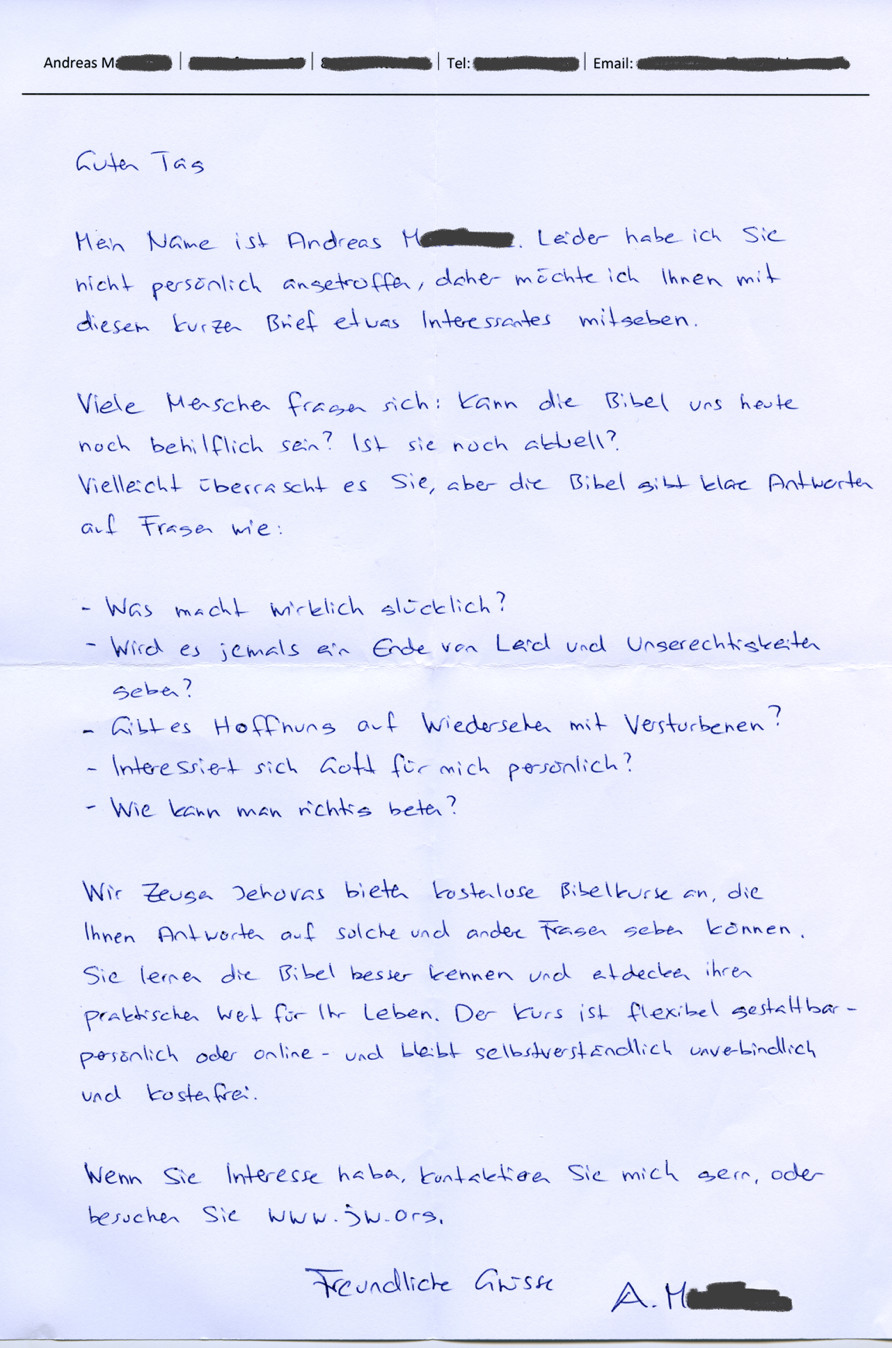 Andreas Ma | | | Tel: | Email:
Guten Tag
Mein Name ist Andreas M. Leider habe ich Sie
nicht persönlich angetroffen, daher möchte ich Ihnen mit
diesem kurzen Brief etwas Interessantes mitgeben.
Viele Menschen fragen sich: Kann die Bibel uns heute
noch behilflich sein? Ist sie noch aktuell?
Vielleicht überrascht es Sie, aber die Bibel gibt klare Antworten
auf Fragen wie:
- Was macht wirklich glücklich?
- Wird es jemals ein Ende von Leid und Ungerechtigkeiten
geben?
- Gibt es Hoffnung auf Wiedersehen mit Verstorbenen?
- Interessiert sich Gott für mich persönlich?
- Wie kann man richtig beten?
Wir Zeugen Jehovas bieten kostenlose Bibelkurse an, die
Ihnen Antworten auf solche und andere Fragen geben können.
Sie lernen die Bibel besser kennen und entdecken ihren
praktischen Wert für Ihr Leben. Der Kurs ist flexibel gestaltbar -
persönlich oder online - und bleibt selbstverständlich unverbindlich
und kostenfrei.
Wenn Sie Interesse haben, kontaktieren Sie mich gern, oder
besuchen Sie www.jw.org.
Freundliche Grüsse A. M